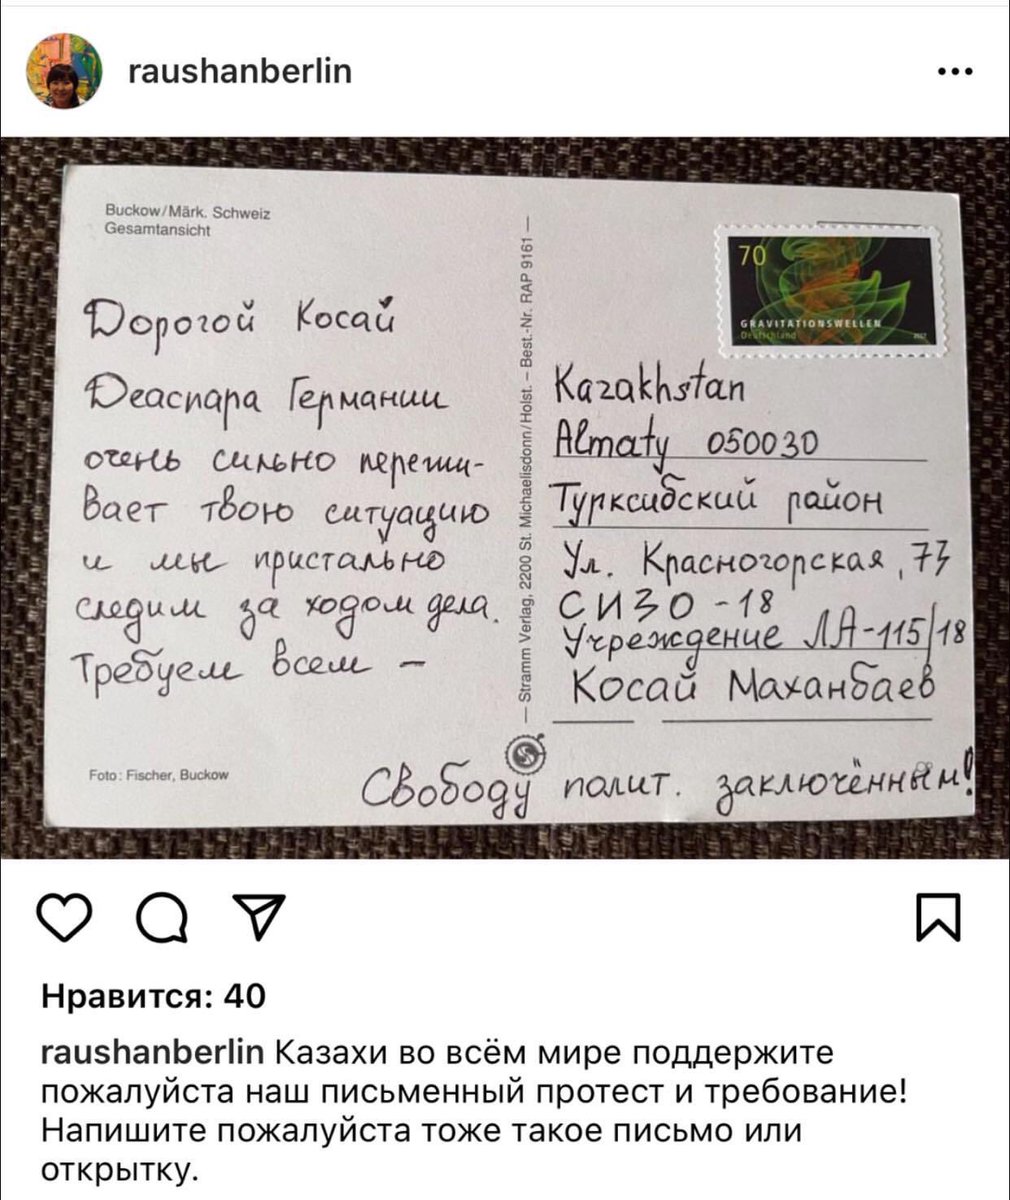 raushanberlin
Buckow/Märk. Schweiz
Gesamtansicht
Дорогой Косай
Деаспара Германии
очень сильно пережи-
вает твою ситуацию
и мы пристально
следим за ходом дела.
Требуем всем –
Foto: Fischer, Buckow
Stramm Verlag, 2200 St. Michaelisdonn/Holst. – Best.-Nr. RAP 9161
70
GRAVITATIONSWELLEN
Deutschland
2017
Kazakhstan
Almaty 050030
Турксибский район
Ул. Красногорская, 73
СИЗО-18
Учреждение ЛА-115/18
Косай Маханбаев
Свободу полит. заключённым!
Нравится: 40
raushanberlin Казахи во всём мире поддержите
пожалуйста наш письменный протест и требование!
Напишите пожалуйста тоже такое письмо или
открытку.